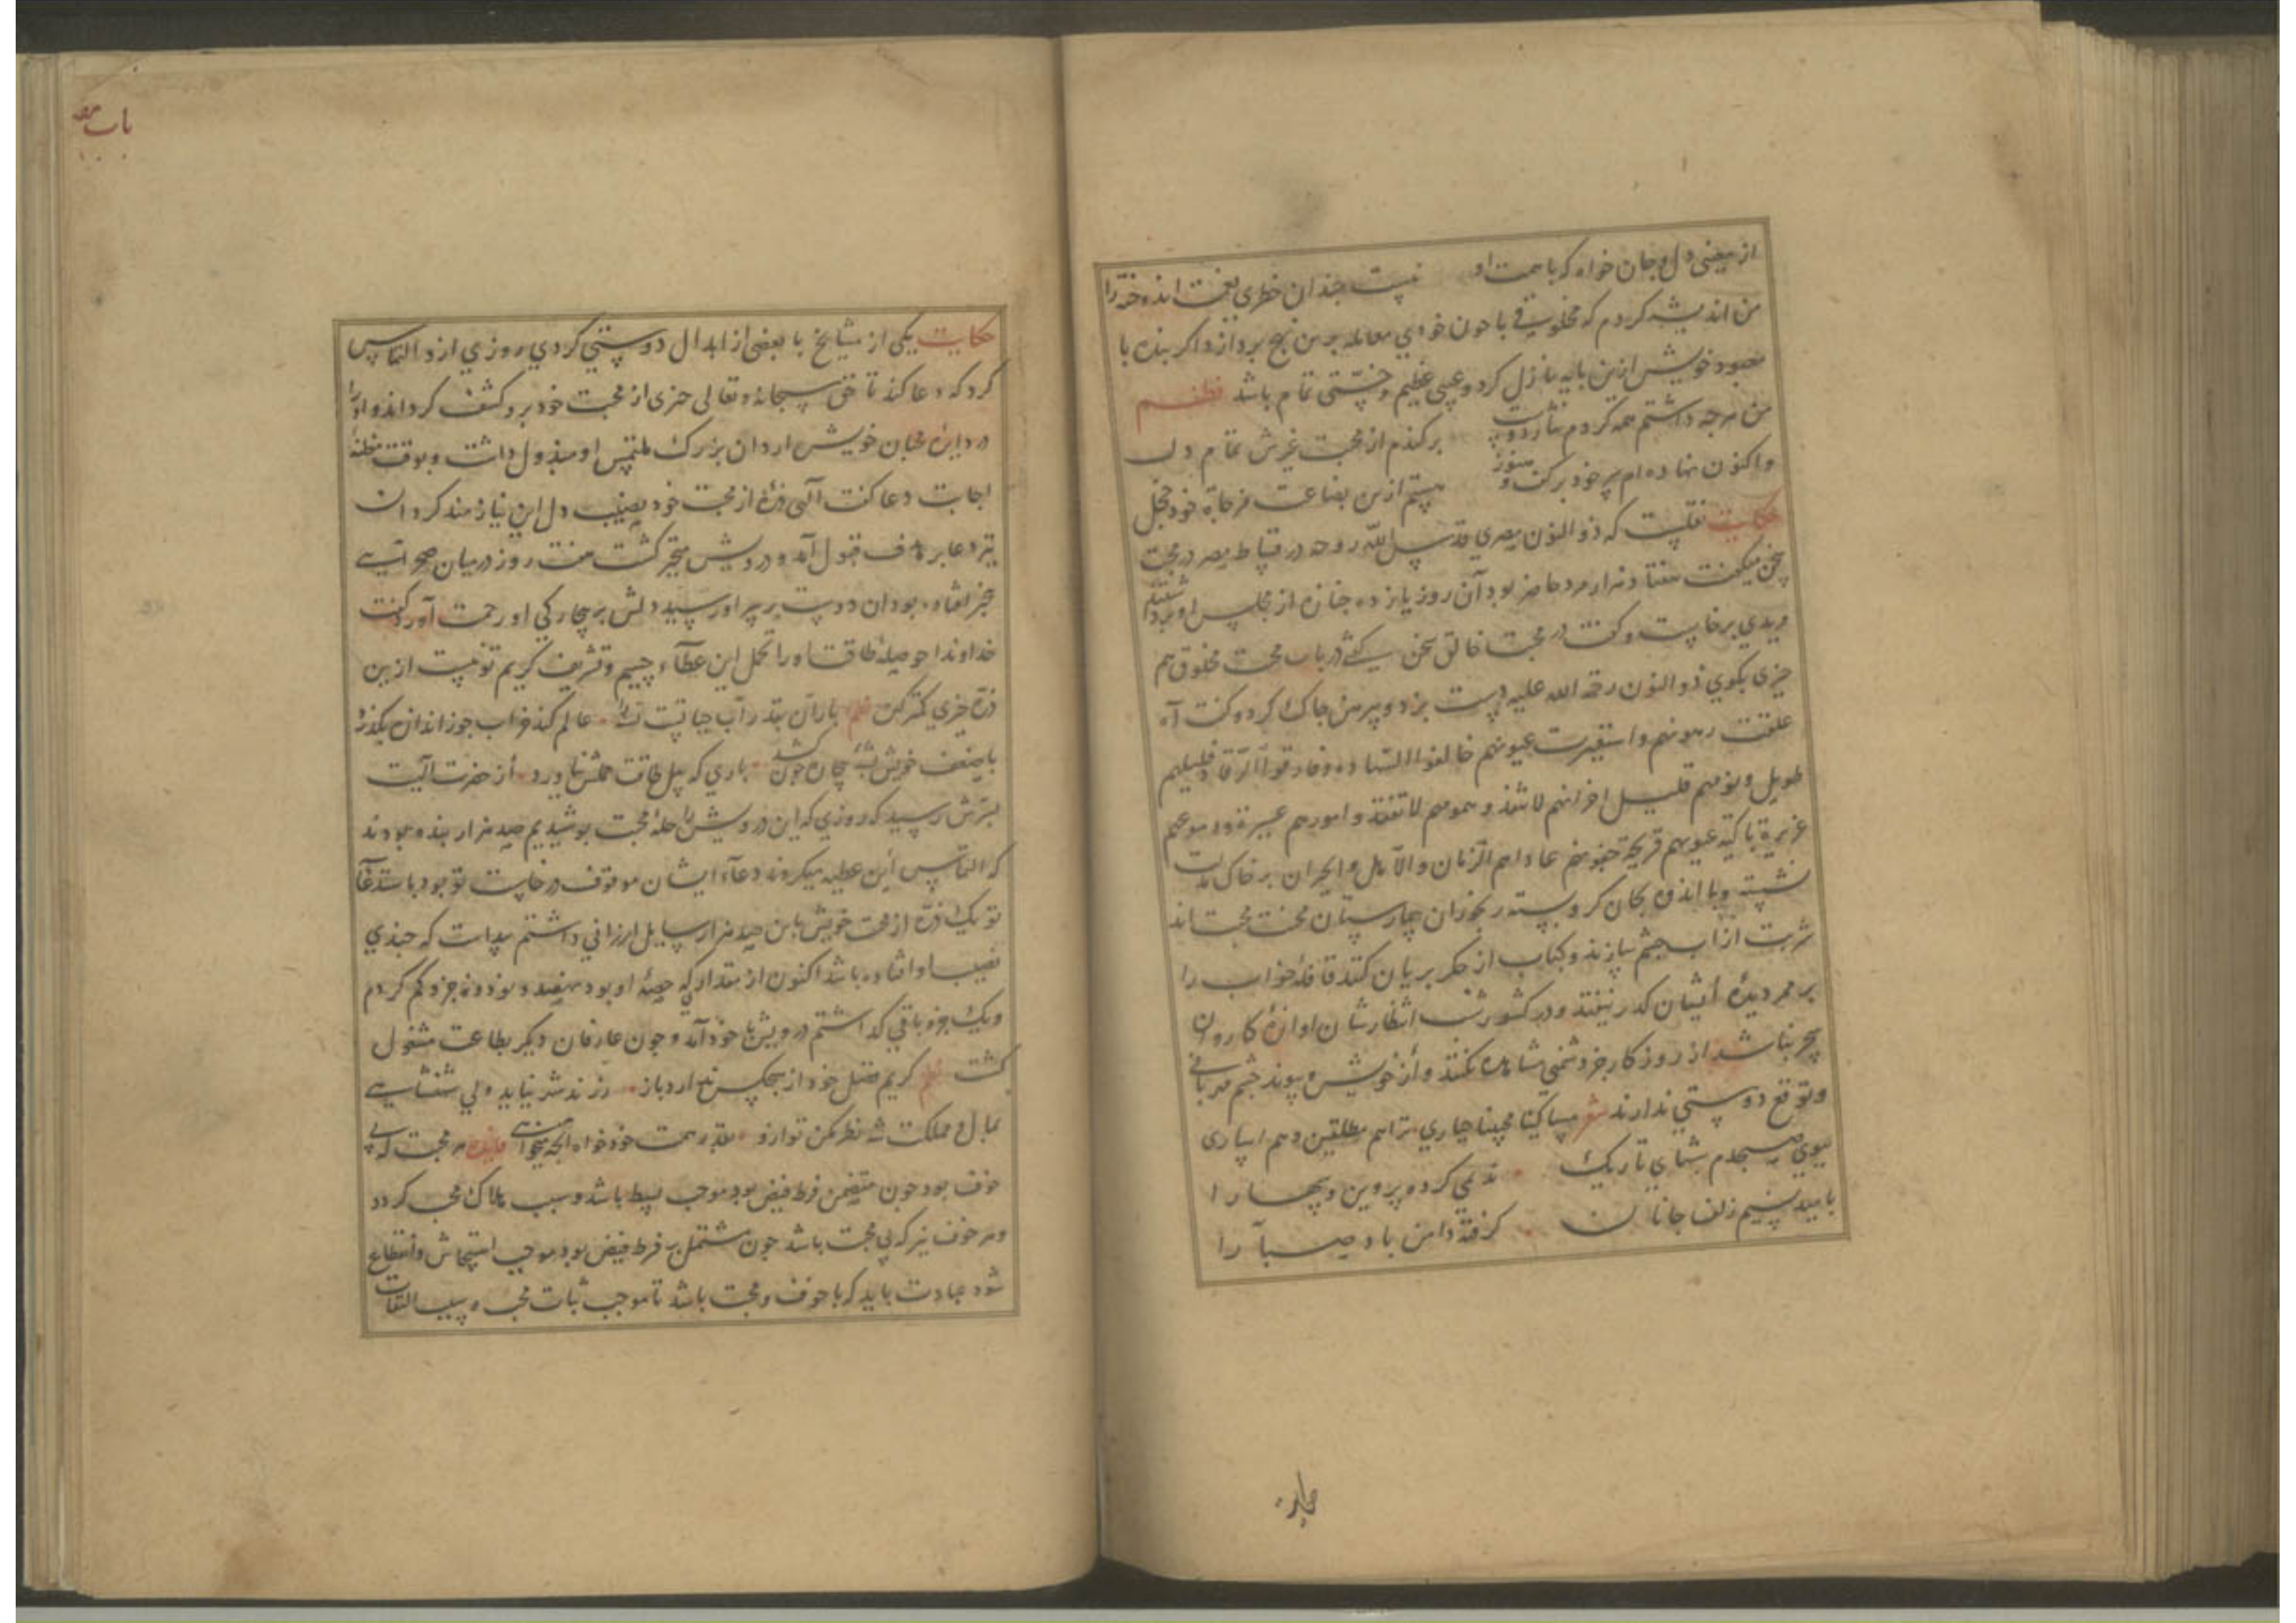 از معنی دل و جان خواه که با همت او نیست چندان خطری
من اندیشه کردم که مخلوقی با جون خودی معامله برین نهج بردازد اکر بنده با
معبود خویش ازین بایه نازل کردد عیبی عظیم و خستی تمام باشد نظم
من هرجه داشتم همه کردم نثار دوست برکندم از محبت غیرش تمام دل
واکنون نهاده ام سر خود برکف و هنوز هستم ازین بضاعت مزجاة خود خجل
حکایت نقلست که ذو النون مصری قدس الله روحه در فسطاط مصر در محبت
سخن میکفت هفتاد هزار مرد حاضر بود آن روز یازده جنازه از مجلس او برداشتند
مریدی برخاست و کفت در محبت خالق سخن کفتی در باب محبت مخلوق هم
جیزی بکوی ذو النون رحمة الله علیه دست بزد و پیرهن جاک کرد و کفت آه
غلقت رهونهم واستعبرت عیونهم خالفوا السهاد وفارقوا الرقاد فلیلهم
طویل ونومهم قلیل احزانهم لا تنفد وهمومهم لا تفقد وامورهم عسیرة ودموعهم
غزیرة باکیة عیونهم قریحة جفونهم عاداهم الزمان والاهل والجیران بر خاک مذلت
نشسته و با اندوه بجان کرو بسته رنجوران بیمارستان محنت محبت اند
شربت از آب جشم سازند و کباب از جکر بریان کنند قافلۀ خواب را
بر ممر دیدۀ ایشان کذر نیفتد و در کشور شب انتظارشان اوازۀ کاروان
سحر نباشد از روزکار جز دشمنی مشاهده نکنند و از خویش و پیوند جشم مهربانی
و توقع دوستی ندارند شعر مساکینا
ببوی صبحدم شبهای تاریک ندیمی کرده پروین و سها را
بامید نسیم زلف جانان کرفته دامن باد صبا را
باب
حکایت یکی از مشایخ با بعضی از ابدال دوستی کردی روزی ازو التماس
کرد که دعا کند تا حق سبحانه و تعالی جیزی از محبت خود برو کشف کرداند و او را
در دایرۀ محبان خویش ارد ان بزرک ملتمس او مبذول داشت و بوقت مظنۀ
اجابت دعا کفت الهی ذرۀ از محبت خود نصیب دل این نیازمند کردان
تیر دعا بر هدف قبول آمد و درویش متحیر کشت هفت روز در میان صحرایی
متحیر افتاده بود ان دوست بر سر او رسید دلش بر بیجارکی او رحمت آورد کفت
خداوندا حوصلۀ طاقت او را تحمل این عطاء جسیم و تشریف کریم تو نیست ازین
ذره جیزی کمتر کن نظم باران بقدر آب حیاتست عالم کند خراب جو ز اندازه بکذرد
با ضعف خویش بشۀ بیجاره جون کشد باری که پیل طاقت حملش نیاورد از حضرت الهیت
بسرش رسید که روزی که این درویش را حلۀ محبت بوشیدیم صد هزار بنده بودند
که التماس این عطیه میکردند دعاء ایشان موقوف درخاست تو بود باستدعای
تو یک ذره از محت خویش باین صد هزار سایل ارزانی داشتم بیداست که جندی
نصیب او افتاده باشد اکنون از مقداری که حصۀ او بود نهصد و نود و نه جزو کم کردم
و یک جزو باقی کداشتم درویش با خود آمد و جون عارفان دیکر بطاعت مشغول
کشت نظم کریم فضل خود از هیجکس ندارد باز
بمال و مملکت شه نظر مکن تو ازو بقدر همت خود خواه انجه میخواهی فایده هر محبت که بی
خوف بود جون متضمن فرط فیض بود موجب بسط باشد و سبب هلاک محب کردد
و هر خوف نیز که بی محبت باشد جون مشتمل بر فرط قبض بود موجب استیحاش و انقطاع
شود عبادت باید که با خوف و محبت باشد تا موجب ثبات محب و سبب التفات